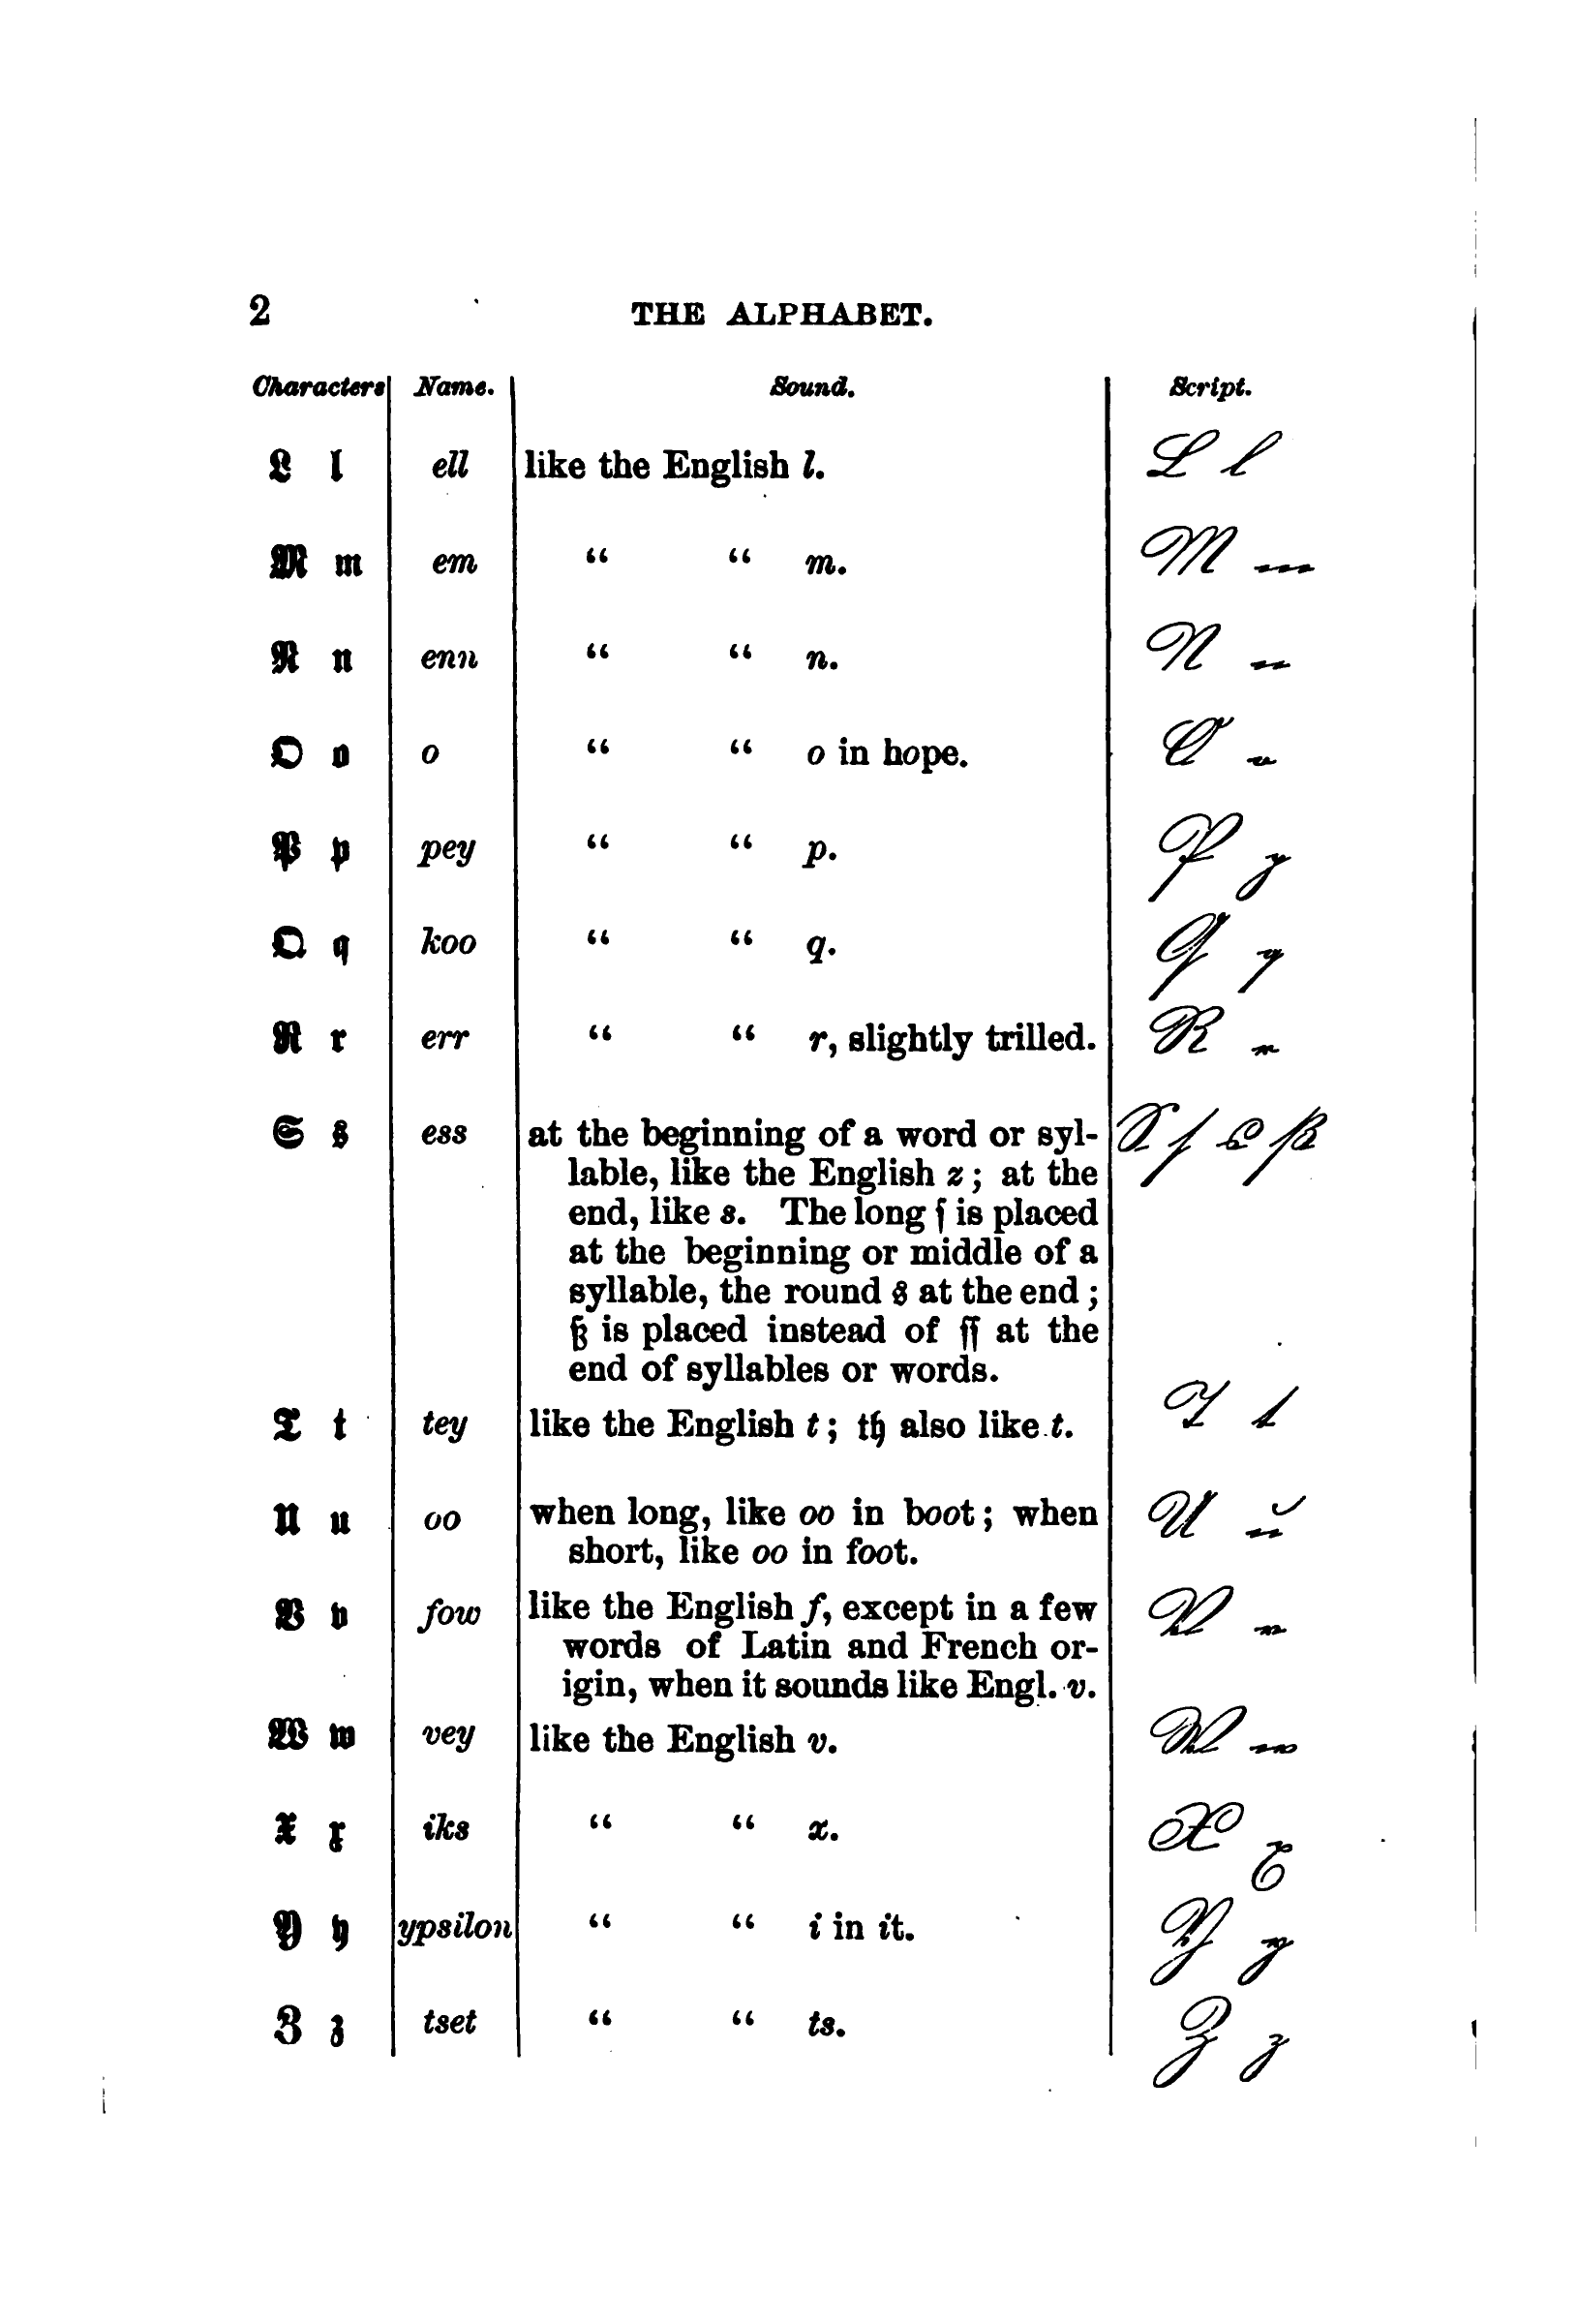 2 THE ALPHABET.
Characters Name. Sound. Script.
L l ell like the English l. L l
M m em “ “ m. M m
N n enn “ “ n. N n
O o o “ “ o in hope. O o
P p pey “ “ p. P p
Q q koo “ “ q. Q q
R r err “ “ r, slightly trilled. R r
S s ess at the beginning of a word or syl- S ſ s ß
lable, like the English z; at the
end, like s. The long ſ is placed
at the beginning or middle of a
syllable, the round s at the end;
ß is placed instead of ſſ at the
end of syllables or words.
T t tey like the English t; th also like t. T t
U u oo when long, like oo in boot; when U u
short, like oo in foot.
V v fow like the English f, except in a few V v
words of Latin and French or-
igin, when it sounds like Engl. v.
W w vey like the English v. W w
X x iks “ “ x. X x
Y y ypsilon “ “ i in it. Y y
Z z tset “ “ ts. Z z